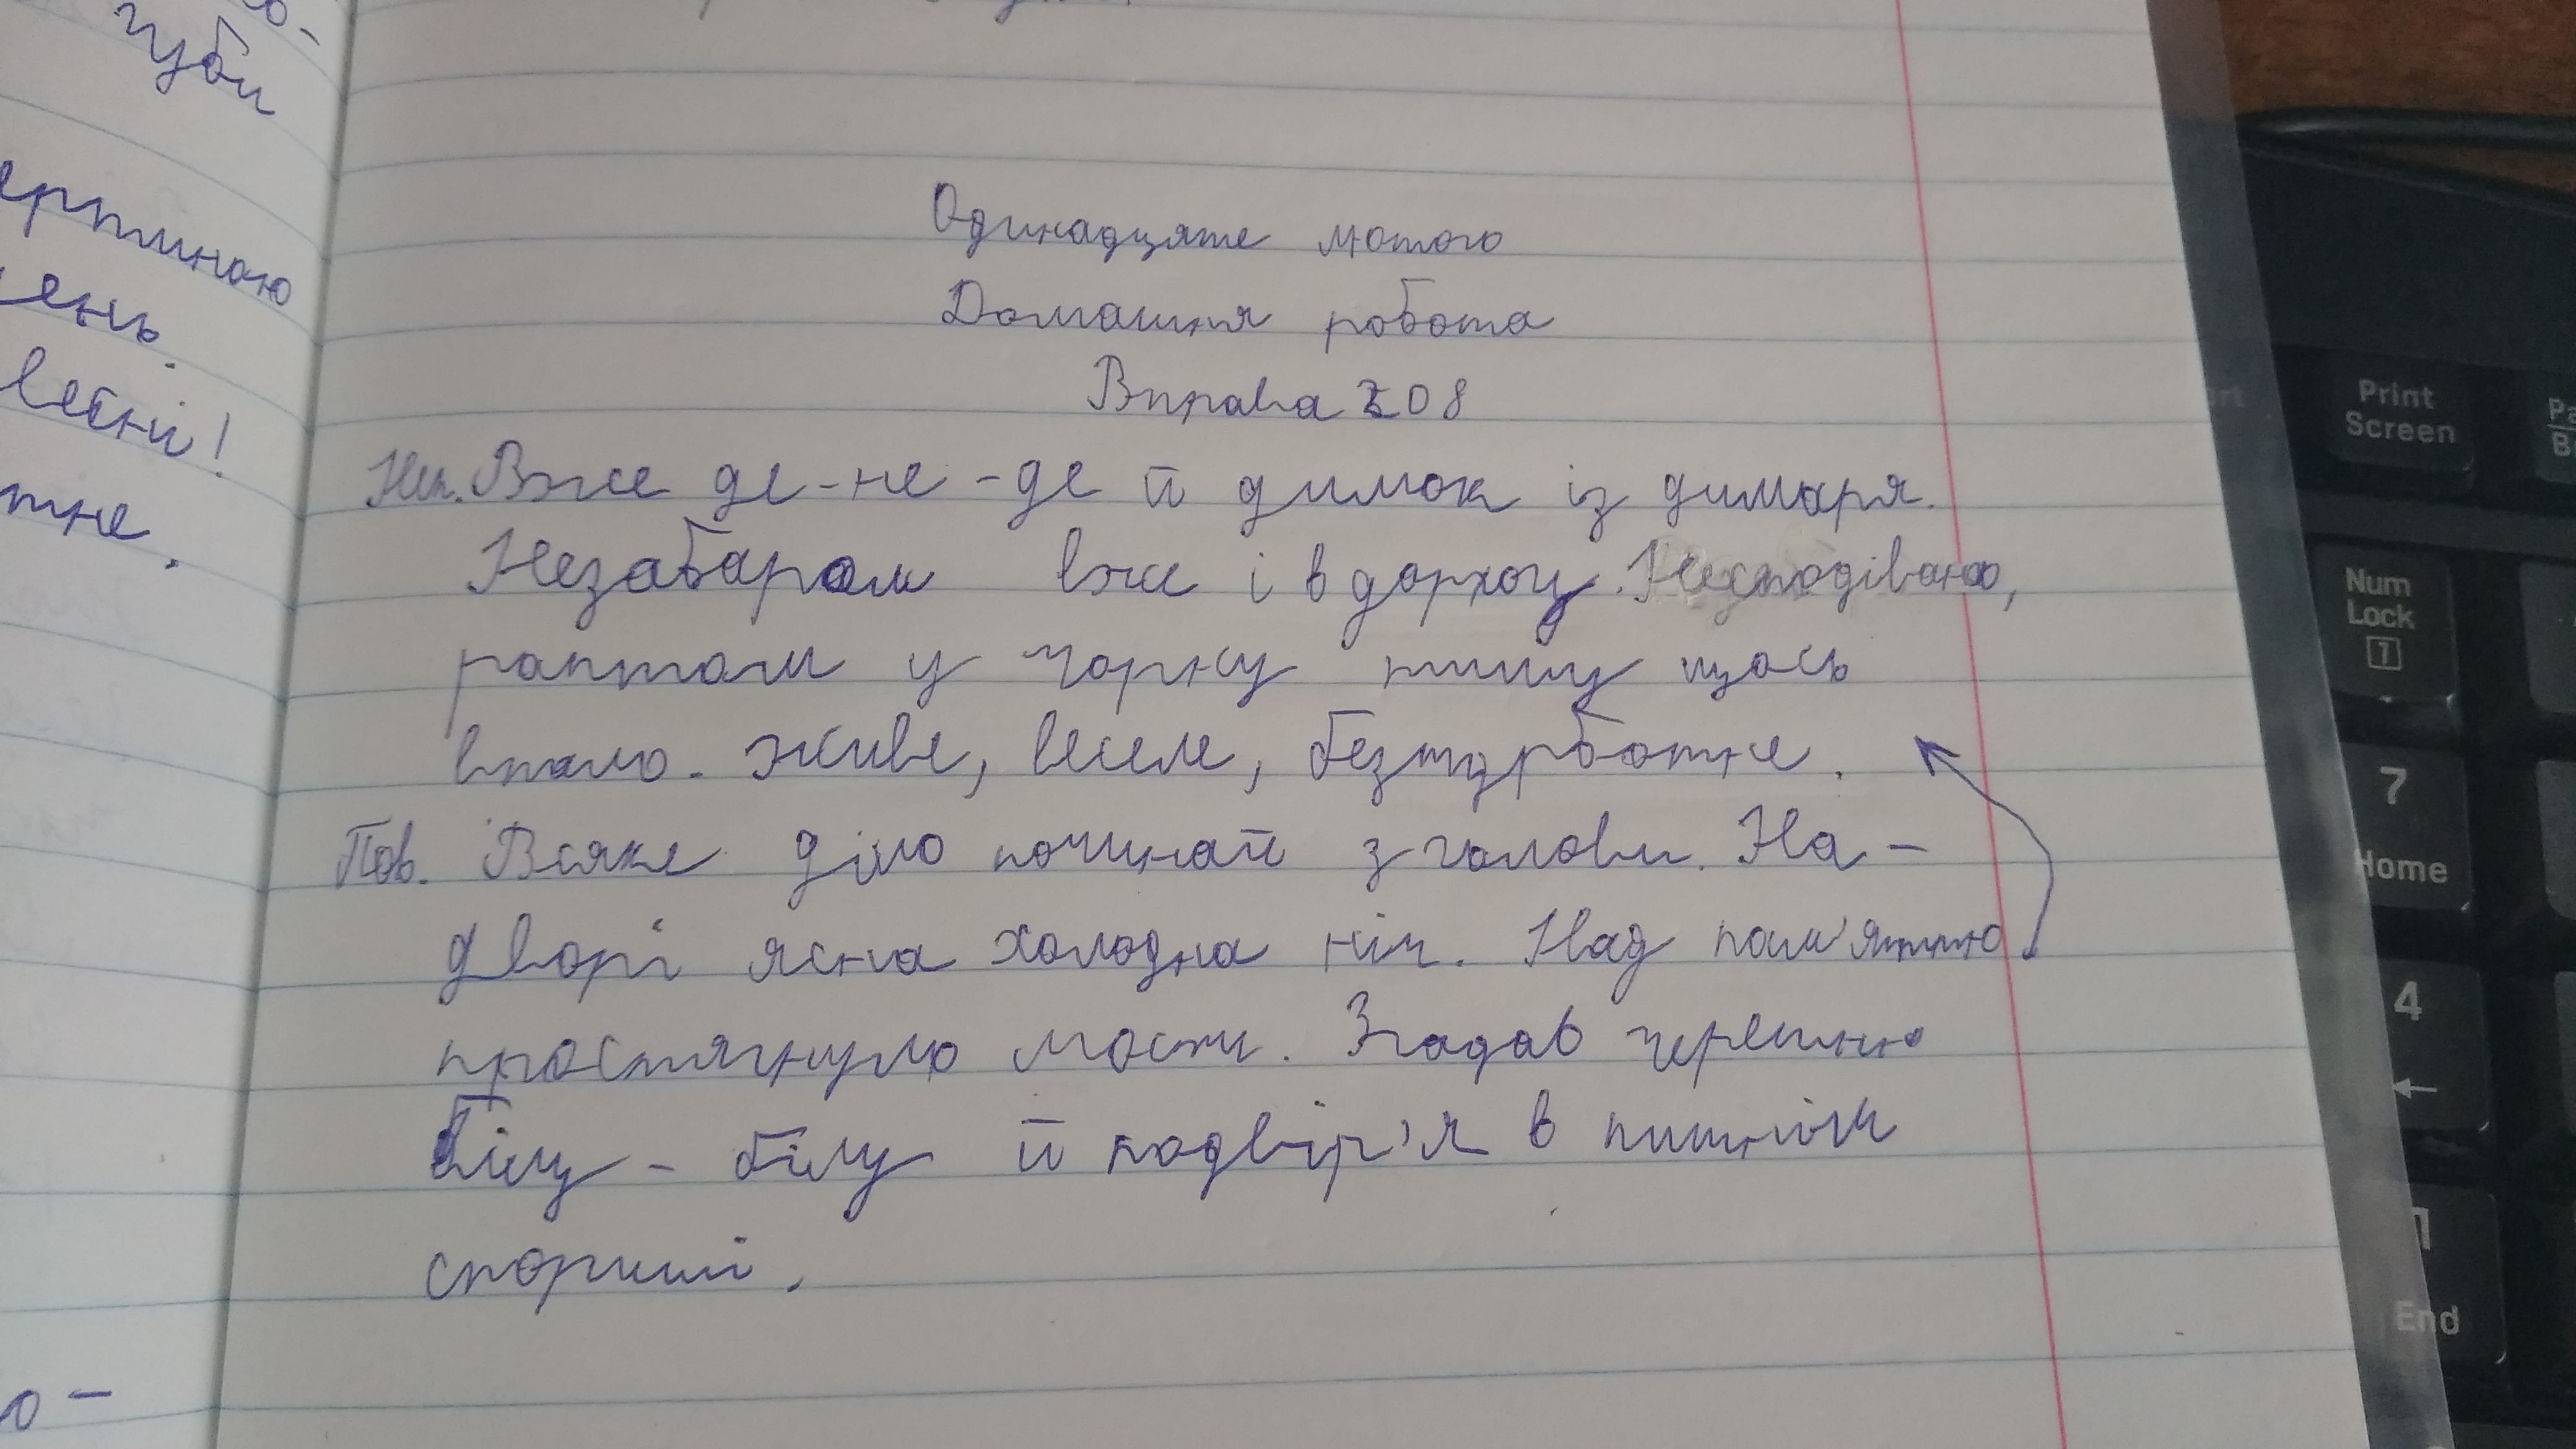 губи
ертиною
ень.
тне.
Одинадцяте лютого
Домашня робота
Вправа 208
Неп. Вже де-не-де й димок із димаря.
Незабаром вже і в дорогу. Несподівано,
раптом у чорну тишу щось
впало. Живе, веселе, безтурботне.
Пов. Всяке діло починай з голови. На-
дворі ясна холодна ніч. Над пам'яттю
простягнуло мости. Згадав черешню
білу-білу й подвір'я в пишнім
спориші.
о-
Print
Screen
Num
Lock
1
7
Home
4
←
End